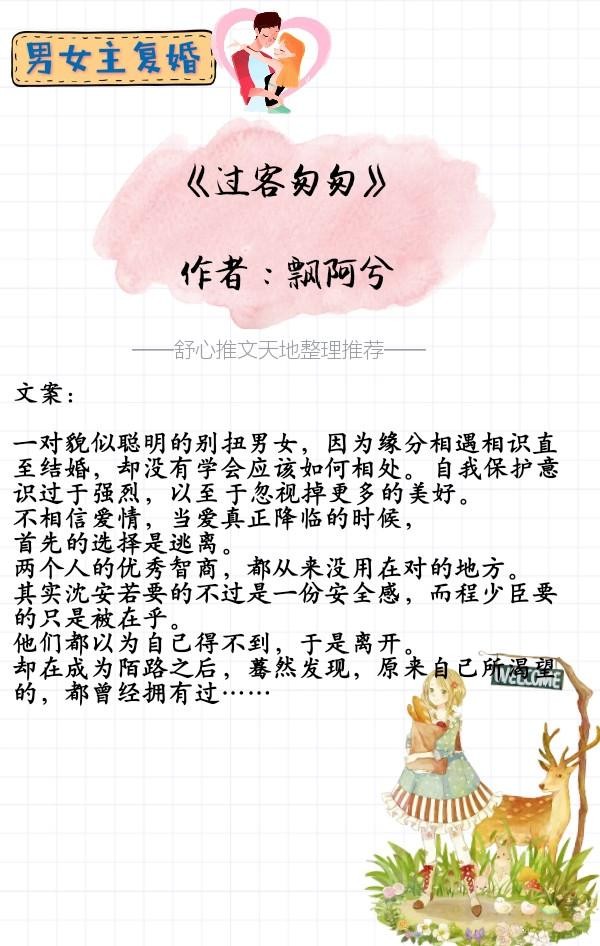 男女主复婚
《过客匆匆》
作者：飘阿兮
——舒心推文天地整理推荐——
文案：
一对貌似聪明的别扭男女，因为缘分相遇相识直
至结婚，却没有学会应该如何相处。自我保护意
识过于强烈，以至于忽视掉更多的美好。
不相信爱情，当爱真正降临的时候，
首先的选择是逃离。
两个人的优秀智商，都从来没用在对的地方。
其实沈安若要的不过是一份安全感，而程少臣要
的只是被在乎。
他们都以为自己得不到，于是离开。
却在成为陌路之后，蓦然发现，原来自己所渴望
的，都曾经拥有过……
WELCOME